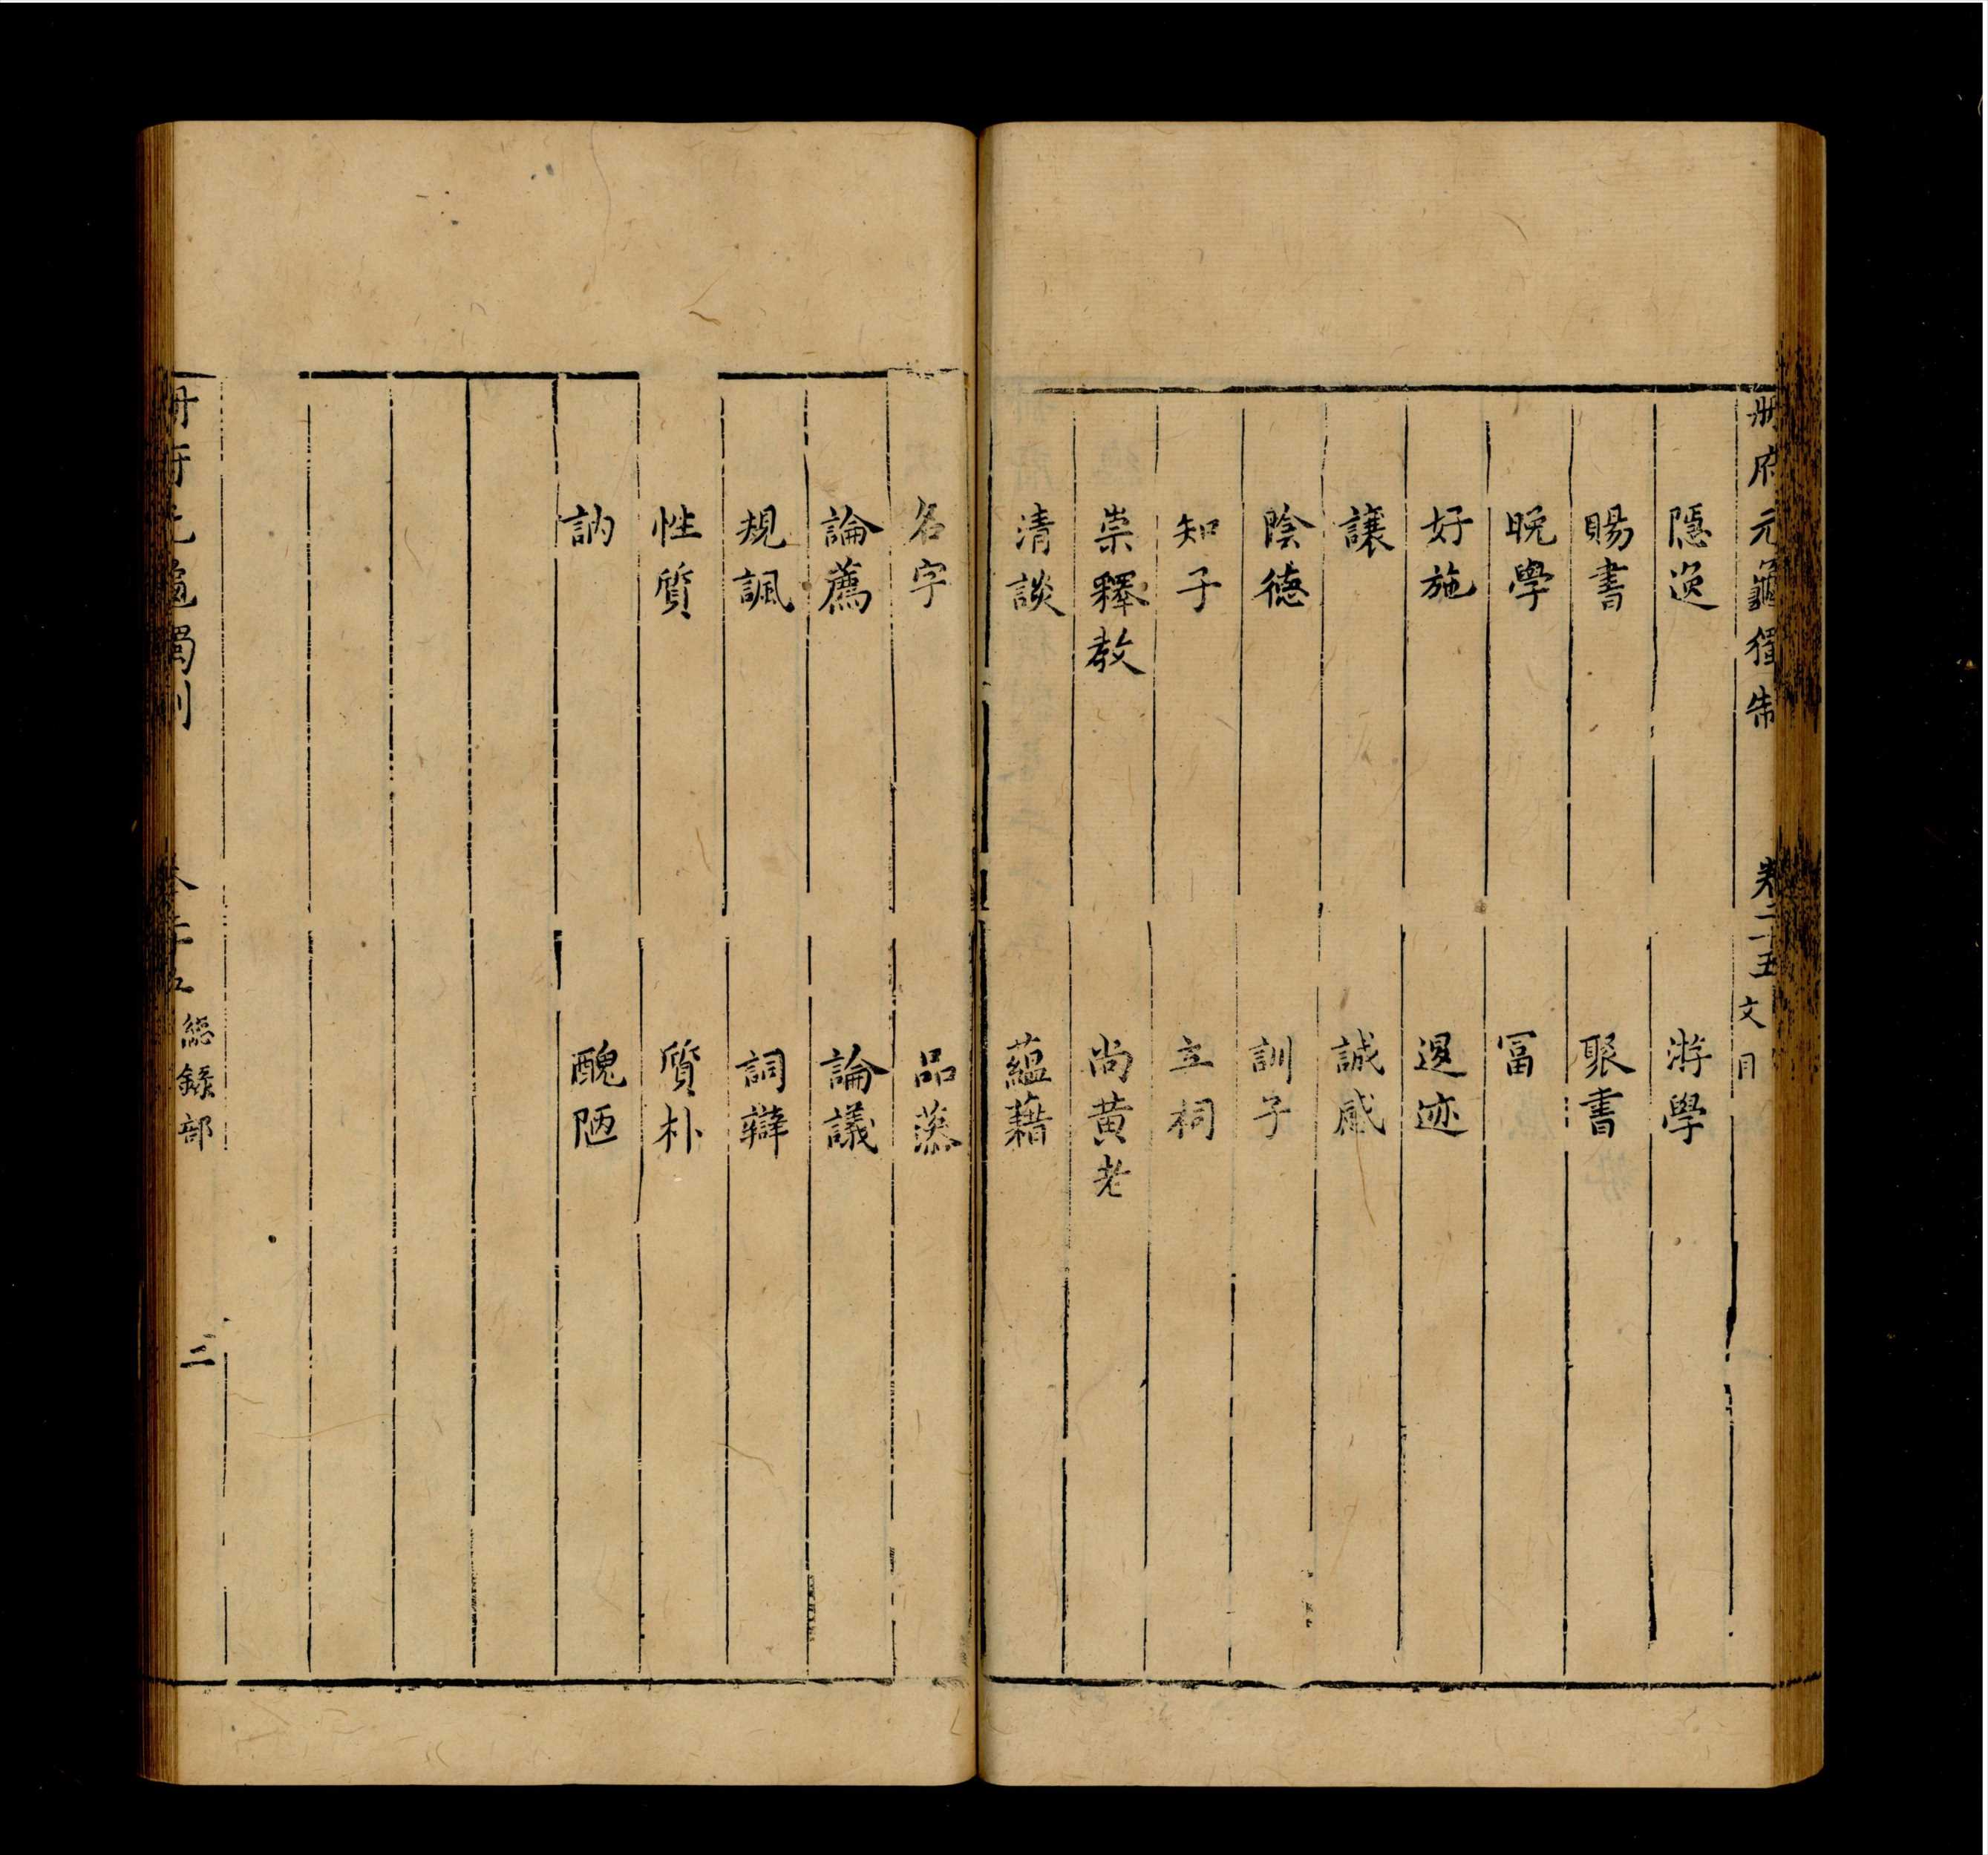 册府元龜獨制 卷二十五 文目
隱逸 游學
賜書 聚書
晚學 富
好施 遯迹
讓 誡感
陰德 訓子
知子 立祠
崇釋教 尚黃老
清談 蘊藉
名字 品藻
論薦 論議
規諷 詞辯
性質 質朴
訥 醜陋
册府元龜獨制 卷二十五 総錄部 二